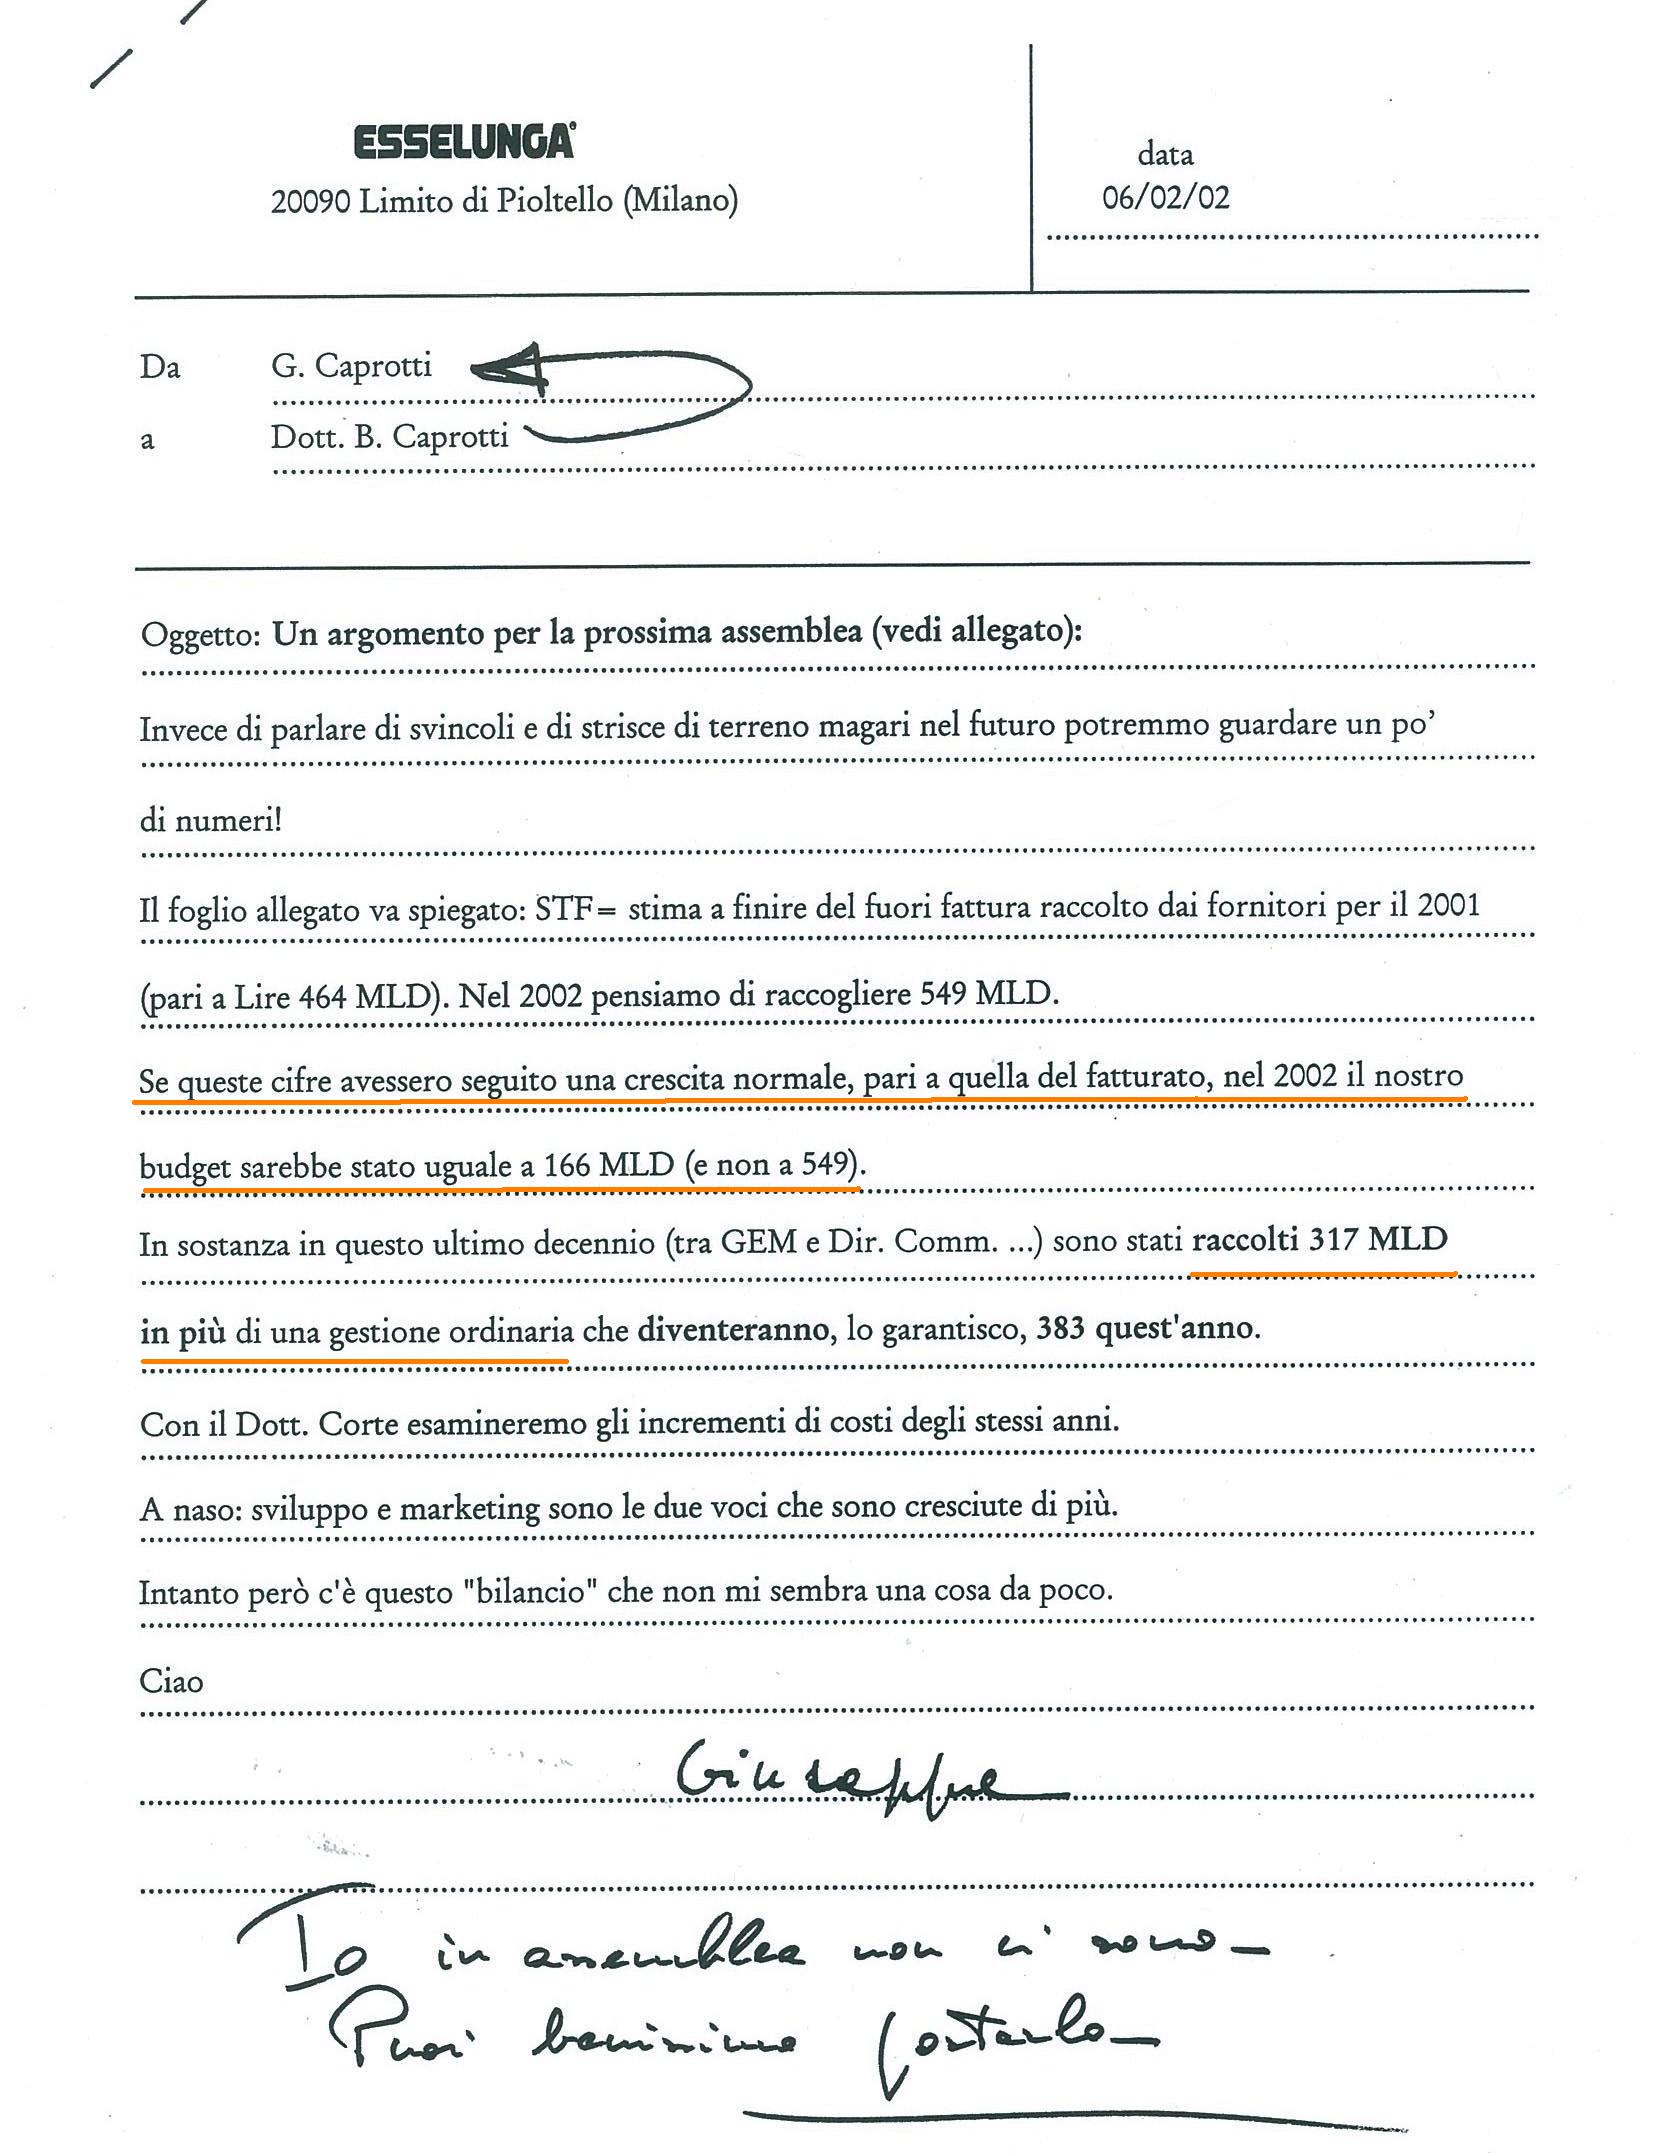 ESSELUNGA®
20090 Limito di Pioltello (Milano)
data
06/02/02
Da G. Caprotti
a Dott. B. Caprotti
Oggetto: Un argomento per la prossima assemblea (vedi allegato):
Invece di parlare di svincoli e di strisce di terreno magari nel futuro potremmo guardare un po’
di numeri!
Il foglio allegato va spiegato: STF= stima a finire del fuori fattura raccolto dai fornitori per il 2001
(pari a Lire 464 MLD). Nel 2002 pensiamo di raccogliere 549 MLD.
Se queste cifre avessero seguito una crescita normale, pari a quella del fatturato, nel 2002 il nostro
budget sarebbe stato uguale a 166 MLD (e non a 549).
In sostanza in questo ultimo decennio (tra GEM e Dir. Comm. ...) sono stati raccolti 317 MLD
in più di una gestione ordinaria che diventeranno, lo garantisco, 383 quest'anno.
Con il Dott. Corte esamineremo gli incrementi di costi degli stessi anni.
A naso: sviluppo e marketing sono le due voci che sono cresciute di più.
Intanto però c'è questo "bilancio" che non mi sembra una cosa da poco.
Ciao
Giuseppe
Io in assemblea non ci sono -
Puoi benissimo portarlo -